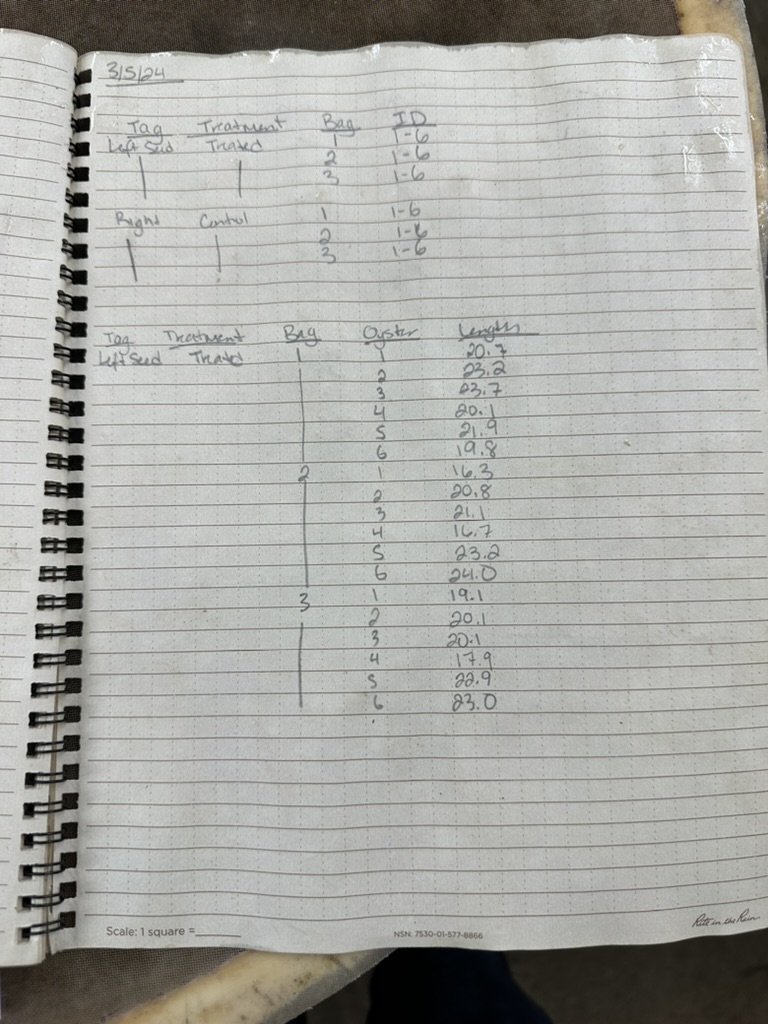 3/5/24
Tag Treatment Bag ID
Left Seed Treated 1 1-6
2 1-6
3 1-6
Right Control 1 1-6
2 1-6
3 1-6
Tag Treatment Bag Oyster Length
Left Seed Treated 1 1 20.7
2 23.2
3 23.7
4 20.1
5 21.9
6 19.8
2 1 16.3
2 20.8
3 21.1
4 16.7
5 23.2
6 24.0
3 1 19.1
2 20.1
3 20.1
4 17.9
5 22.9
6 23.0
Scale: 1 square =______ NSN: 7530-01-577-8866 Rite in the Rain